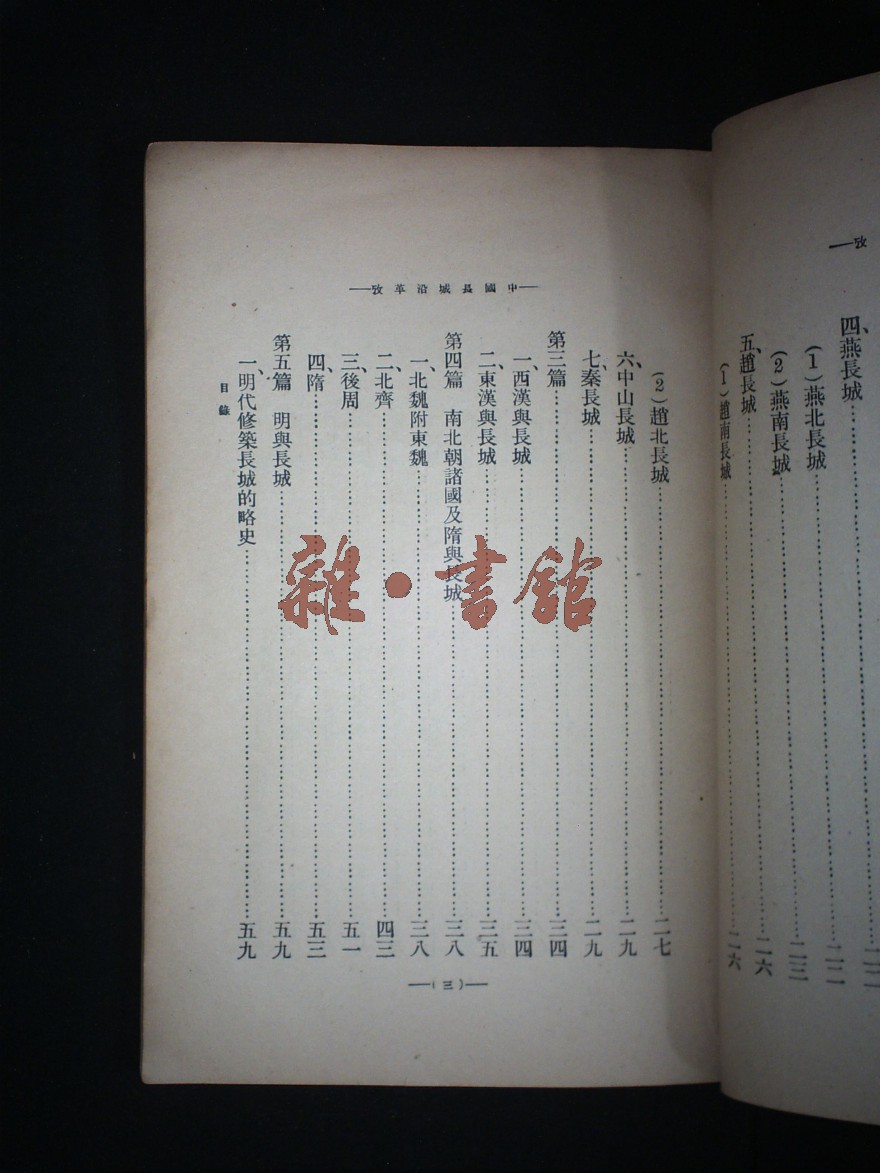 —攷
四、燕長城
(1)燕北長城……二二
(2)燕南長城……二三
五、趙長城……二六
(1)趙南長城……二六
—中國長城沿革攷—
(2)趙北長城……二七
六、中山長城……二九
七、秦長城……二九
第三篇……三四
一、西漢與長城……三四
二、東漢與長城……三五
第四篇　南北朝諸國及隋與長城……三八
一、北魏附東魏……三八
二、北齊……四三
三、後周……五一
四、隋……五三
第五篇　明與長城……五九
一、明代修築長城的略史……五九
目錄
—(三)—
雜·書館